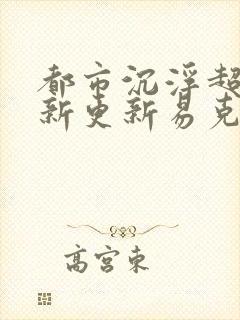 都市沉浮超
新更新易克
高宫東